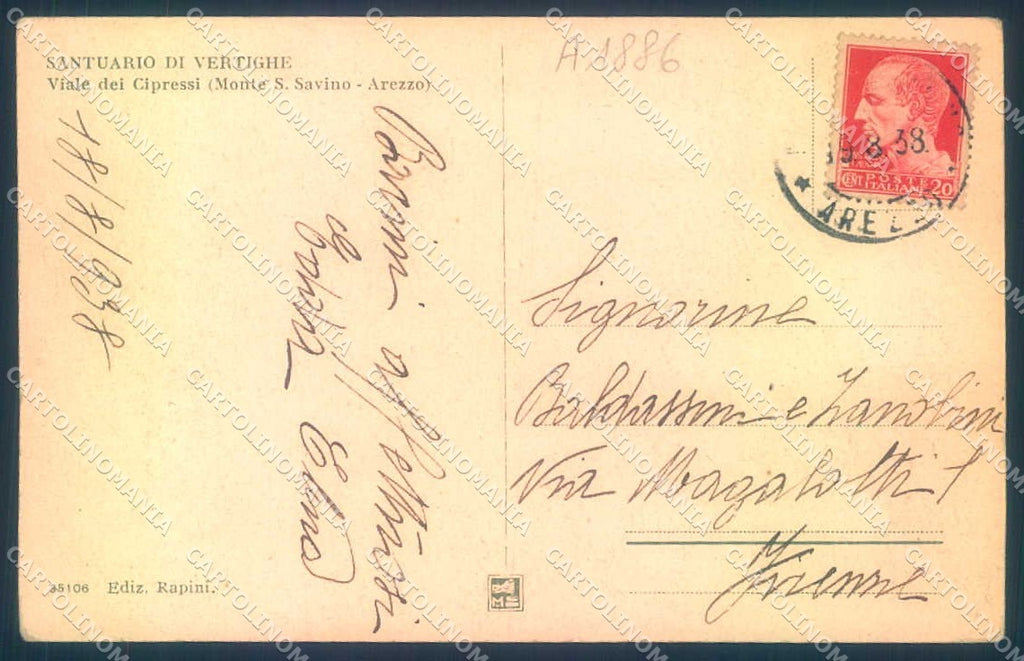 SANTUARIO DI VERTIGHE
Viale dei Cipressi (Monte S. Savino - Arezzo)
A1886
18/8/938
affettuosi
Signorine
Baldassini e Zanobini
Via Magalotti 1
Firenze
19.8.38.
AREZ
POSTE
ITALIANE
CENT 20
35106 Ediz. Rapini.
CARTOLINOMANIA